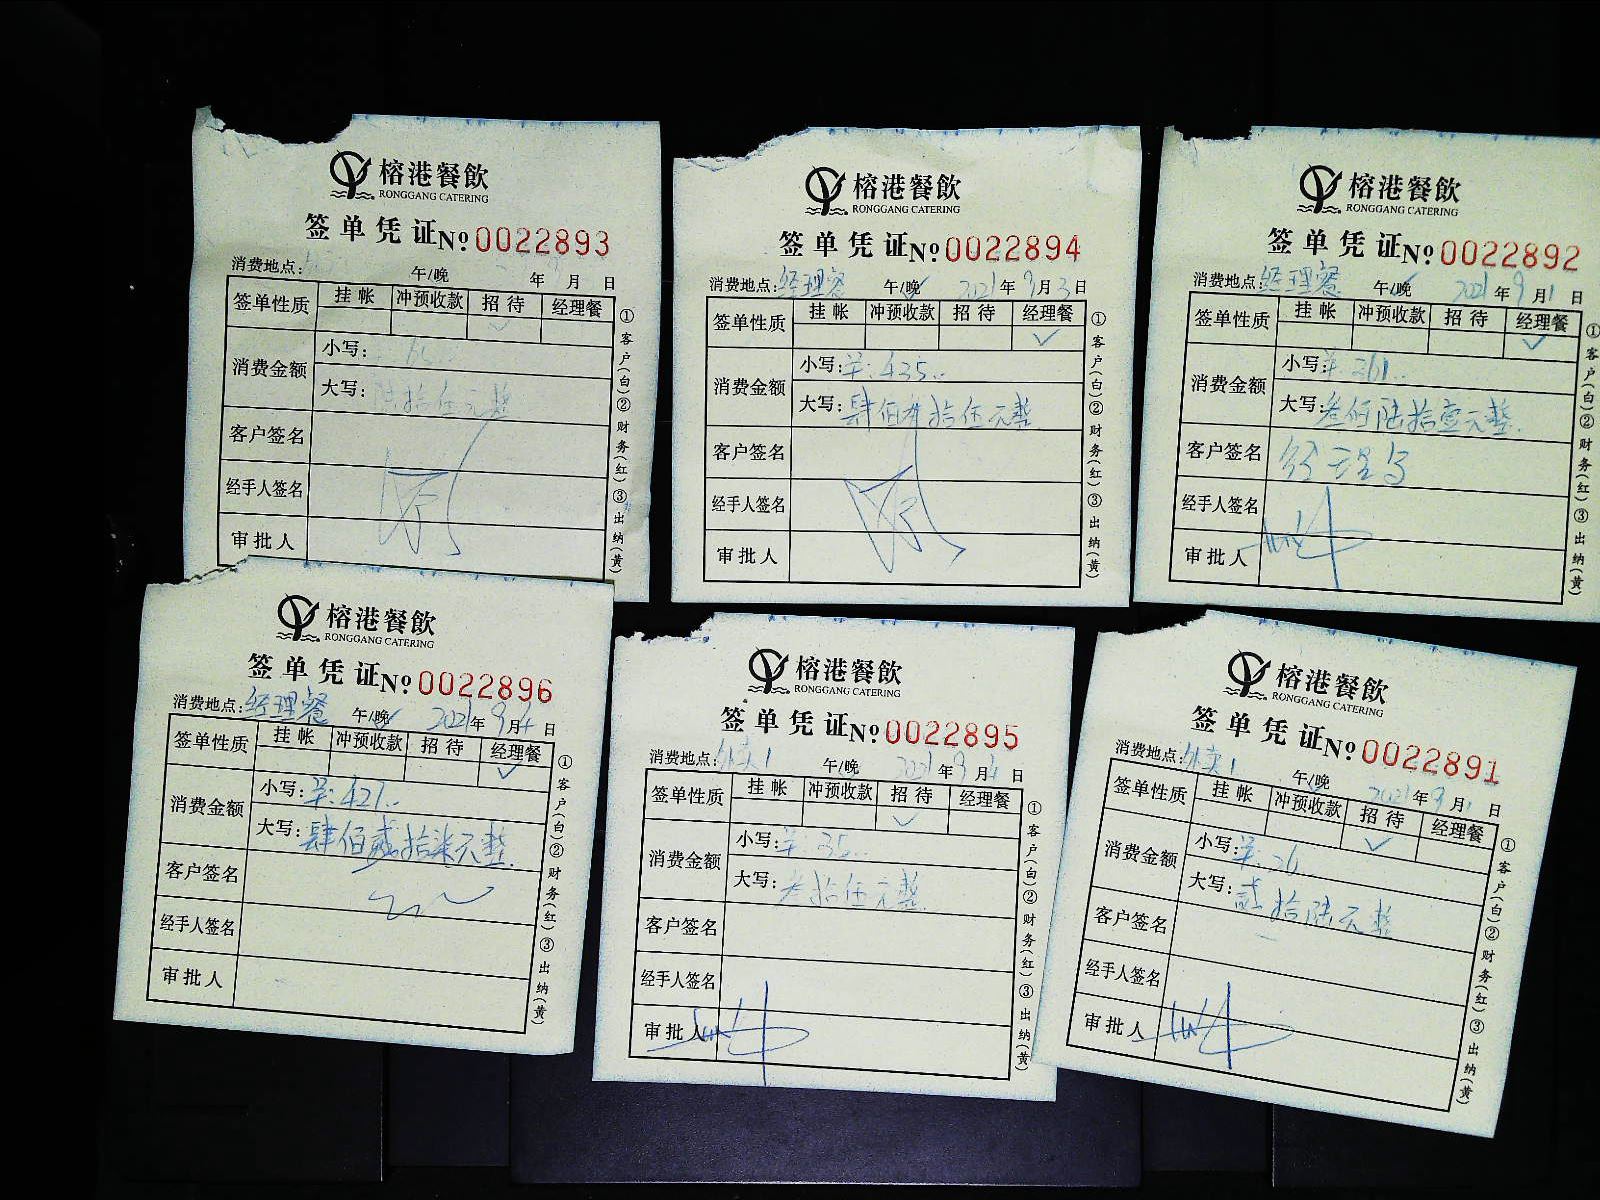 榕港餐飲
RONGGANG CATERING
签单凭证 №0022893
消费地点: 午/晚 年 月 日
签单性质 挂帐 冲预收款 招待 经理餐
消费金额 小写:
大写: 陆拾伍元整
客户签名
经手人签名
审批人
①客户(白)②财务(红)③出纳(黄)
榕港餐飲
RONGGANG CATERING
签单凭证 №0022894
消费地点: 经理餐 午/晚 2021年9月3日
签单性质 挂帐 冲预收款 招待 经理餐
消费金额 小写: 435..
大写: 肆佰 拾伍元整
客户签名
经手人签名
审批人
①客户(白)②财务(红)③出纳(黄)
榕港餐飲
RONGGANG CATERING
签单凭证 №0022892
消费地点: 经理餐 午/晚 2021年9月1日
签单性质 挂帐 冲预收款 招待 经理餐
消费金额 小写: 361..
大写: 叁佰陆拾壹元整.
客户签名
经手人签名
审批人
①客户(白)②财务(红)③出纳(黄)
榕港餐飲
RONGGANG CATERING
签单凭证 №0022896
消费地点: 经理餐 午/晚 2021年9月4日
签单性质 挂帐 冲预收款 招待 经理餐
消费金额 小写: 427..
大写: 肆佰贰拾柒元整.
客户签名
经手人签名
审批人
①客户(白)②财务(红)③出纳(黄)
榕港餐飲
RONGGANG CATERING
签单凭证 №0022895
消费地点: 外卖1 午/晚 2021年9月4日
签单性质 挂帐 冲预收款 招待 经理餐
消费金额 小写: 35..
大写: 叁拾伍元整.
客户签名
经手人签名
审批人
①客户(白)②财务(红)③出纳(黄)
榕港餐飲
RONGGANG CATERING
签单凭证 №0022891
消费地点: 外卖1 午/晚 2021年9月1日
签单性质 挂帐 冲预收款 招待 经理餐
消费金额 小写: 26
大写: 贰拾陆元整
客户签名
经手人签名
审批人
①客户(白)②财务(红)③出纳(黄)